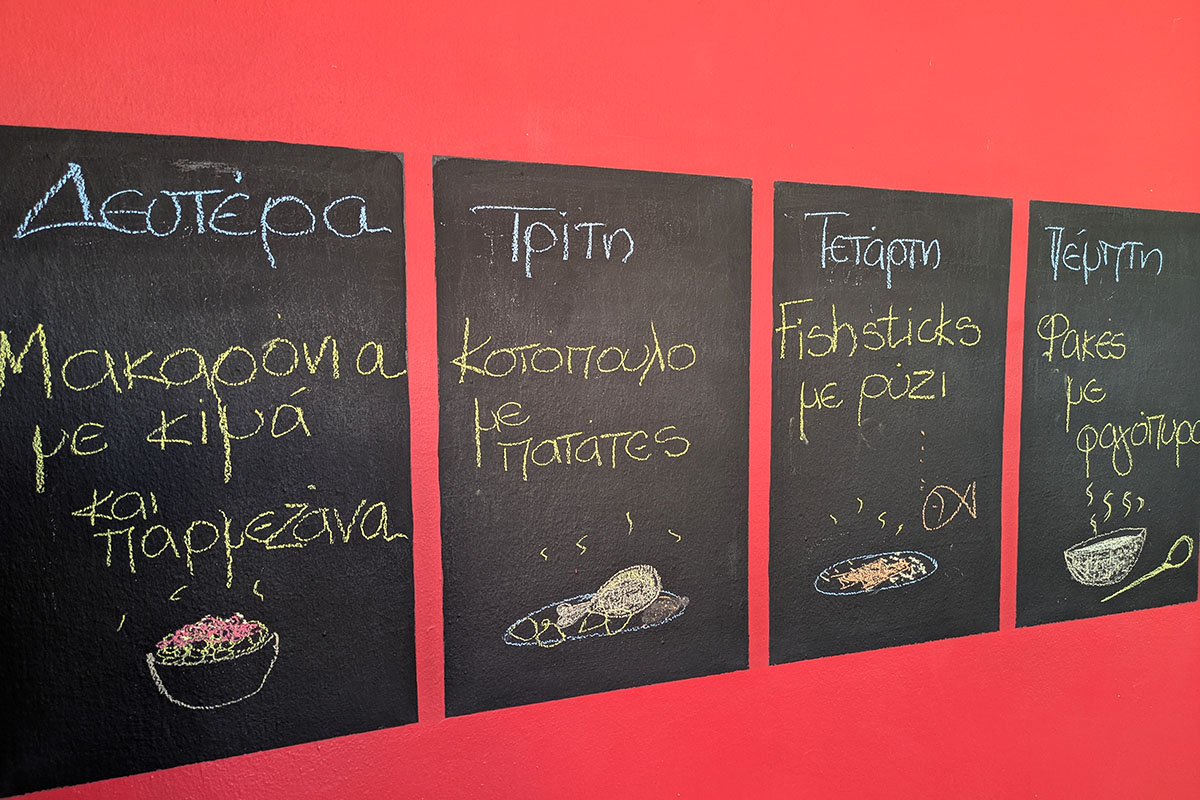 Δευτέρα
Μακαρόνια
με κιμά
και
παρμεζάνα
Τρίτη
Κοτόπουλο
με
πατάτες
Τετάρτη
Fishsticks
με ρύζι
Πέμπτη
Φακές
με
φαγόπυρο